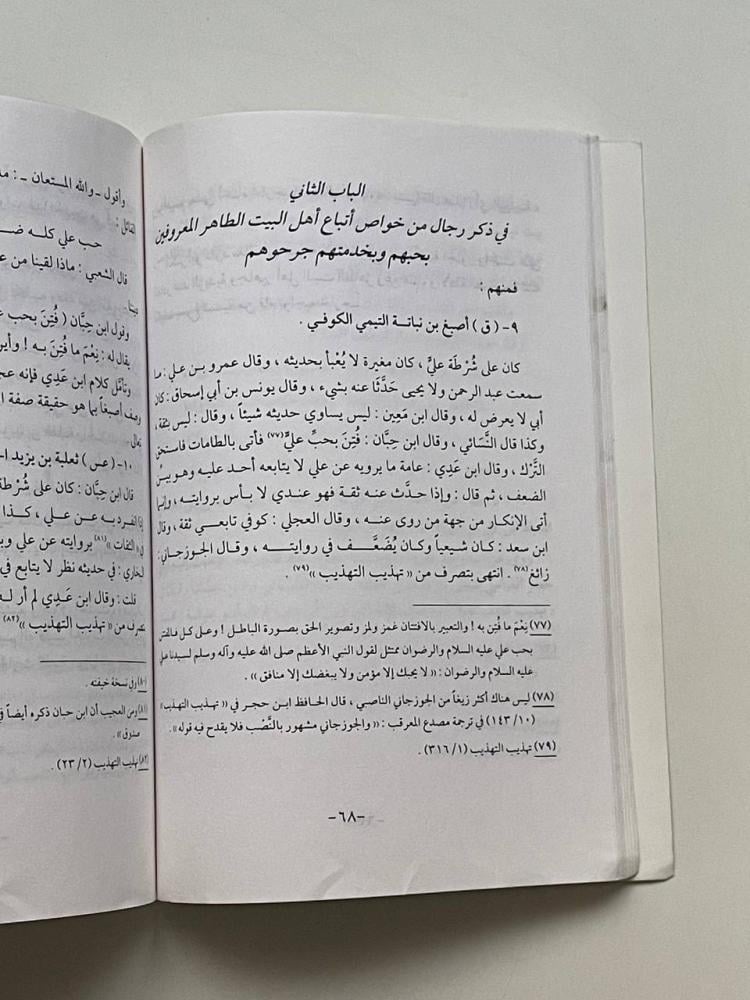 الباب الثاني
في ذكر رجال من خواص أتباع أهل البيت الطاهر المعروفين
بحبهم وبخدمتهم جرحوهم
فمنهم :
٩- ( ق ) أصبغ بن نباتة التيمي الكوفي .
كان على شُرْطَة عليٍّ ، كان مغيرة لا يُعْبأ بحديثه ، وقال عمرو بن علي : ما
سمعت عبد الرحمن ولا يحيى حَدَّثَا عنه بشيء ، وقال يونس بن أبي إسحاق : كان
أبي لا يعرض له ، وقال ابن مَعِين : ليس يساوي حديثه شيئاً ، وقال : ليس بثقة ،
وكذا قال النَّسَائي ، وقال ابن حِبَّان : فُتِنَ بحبِّ عليٍّ (٧٧) فأتى بالطامات فاستحق
التَّرْك ، وقال ابن عَدِي : عامة ما يرويه عن علي لا يتابعه أحد عليه وهو بيِّن
الضعف ، ثم قال : وإذا حدَّث عنه ثقة فهو عندي لا بأس بروايته ، وإنما
أتى الإنكار من جهة من روى عنه ، وقال العجلي : كوفي تابعي ثقة ، وقال
ابن سعد : كان شيعياً وكان يُضَعَّف في روايته ، وقال الجوزجاني :
زائغ (٧٨) . انتهى بتصرف من « تهذيب التهذيب » (٧٩) .
(٧٧) نِعْمَ ما فُتِن به ! والتعبير بالافتتان غمز ولمز وتصوير الحق بصورة الباطل ! وعلى كل فالمفتتن
بحب علي عليه السلام والرضوان ممتثل لقول النبي الأعظم صلى الله عليه وآله وسلم لسيدنا علي
عليه السلام والرضوان : « لا يحبك إلا مؤمن ولا يبغضك إلا منافق » .
(٧٨) ليس هناك أكثر زيغاً من الجوزجاني الناصبي ، قال الحافظ ابن حجر في « تهذيب التهذيب »
(١٠/ ١٤٣) في ترجمة مصدع المعرقب : « والجوزجاني مشهور بالنَّصْب فلا يقدح فيه قوله » .
(٧٩) تهذيب التهذيب (١/ ٣١٦) .
-٦٨-
وأقول ـ والله المستعان ـ :
القائل :
حب علي كله
قال الشعبي : ماذا لقينا من
وقول ابن حِبَّان ( فُتِنَ بحب
يقال له : نِعْمَ ما فُتِنَ به !
وتأمَّل كلام ابن عَدِي فإنه
وصف أصبغاً بما هو حقيقة صفة
١٠- ( عس ) ثعلبة بن يزيد
قال ابن حِبَّان : كان على شُرْطَة
إذا انفرد به عن علي ، كذا
في « الثقات » (٨١) بروايته عن علي
البخاري : في حديثه نظر لا يتابع في
قلت : وقال ابن عَدِي لم أر له
بتصرف من « تهذيب التهذيب » (٨٢)
(٨٠) وفي نسخة خيفته .
(٨١) ومن العجيب أن ابن حبان ذكره أيضاً في
صدوق » .
(٨٢) تهذيب التهذيب (٢/ ٢٣) .